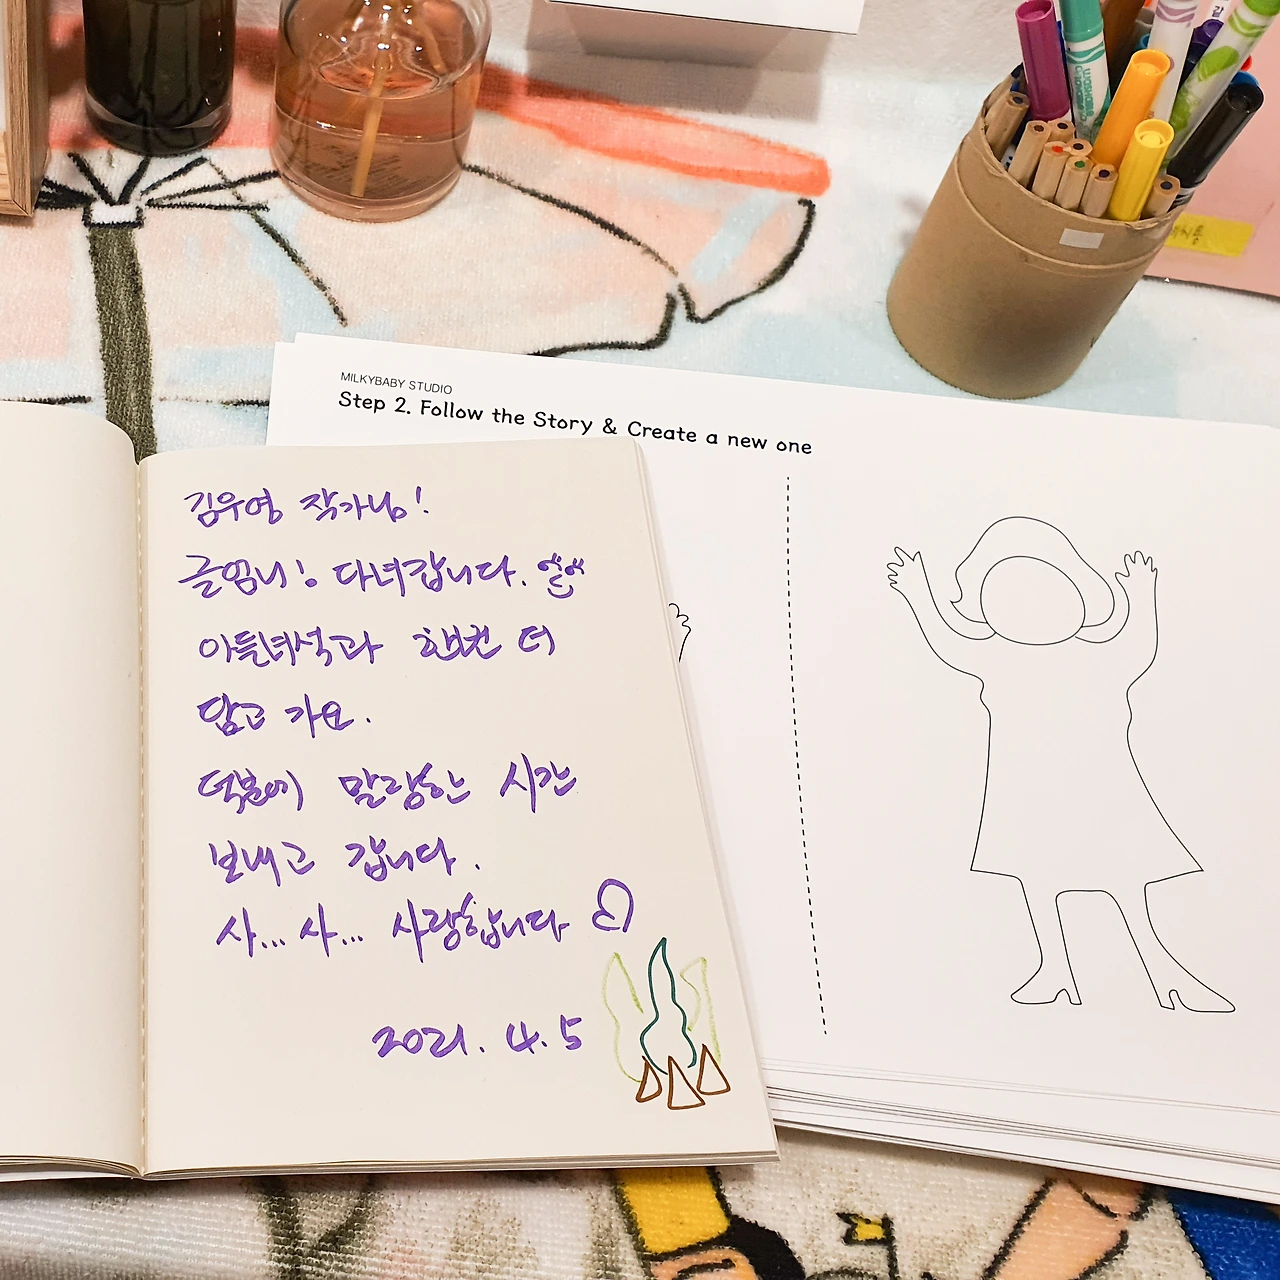 MILKYBABY STUDIO
Step 2. Follow the Story & Create a new one
김우영 작가님!
글엄니! 다녀갑니다.
아들녀석과 한번 더
담고 가요.
덕분에 말랑한 시간
보내고 갑니다.
사... 사... 사랑합니다
2021. 4. 5